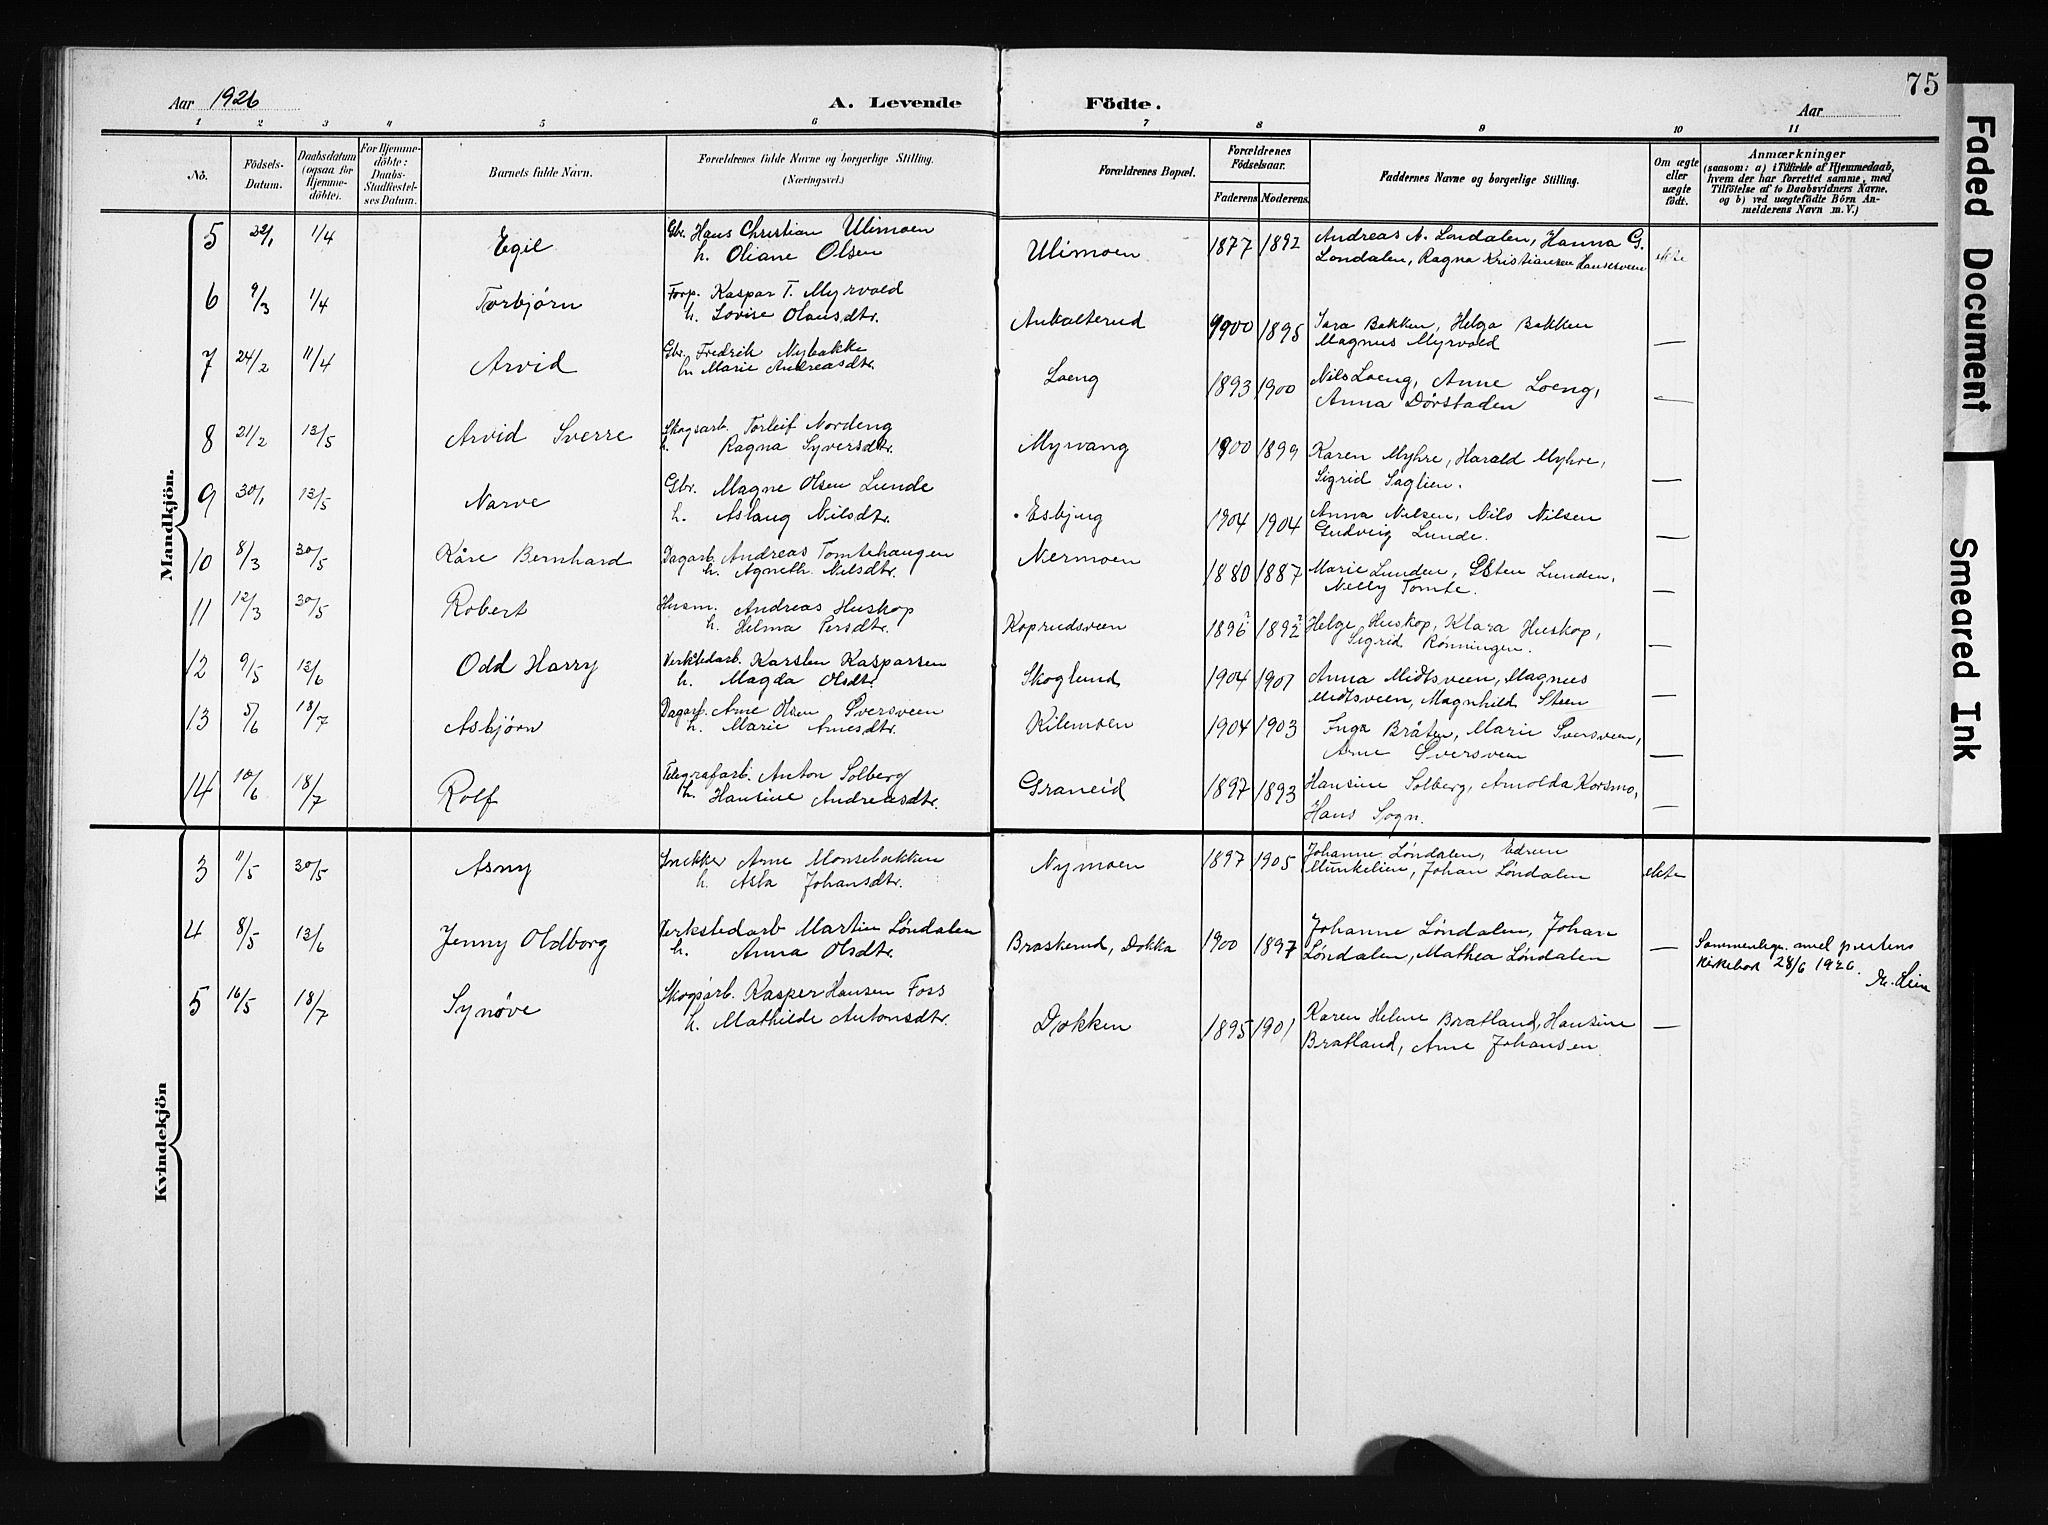 75
Aar 1926 A. Levende Födte. Aar
1 2 3 4 5 6 7 8 9 10 11
No.
Födsels-Datum.
Daabsdatum (ogsaa for Hjemme-döbte).
For Hjemme-döbte: Daabs-Stadfæstel-ses Datum.
Barnets fulde Navn.
Forældrenes fulde Navne og borgerlige Stilling. (Næringsvei.)
Forældrenes Bopæl.
Forældrenes Födselsaar.
Faderens Moderens.
Faddernes Navne og borgerlige Stilling.
Om ægte eller uægte födt.
Anmærkninger
(saasom: a) i Tilfælde af Hjemmedaab,
hvem der har forrettet samme, med
Tilföielse af to Daabsvidners Navne,
og b) ved uægtefödte Börn An-
melderens Navn m. V.)
Mandkjön.
5 22/1 1/4 Egil Gbr. Hans Christian Ulimoen
h. Oliane Olsen Ulimoen 1877 1892 Andreas A. Londalen, Hanna G.
Londalen, Ragna Kristiansen Hansesveen ekte
6 9/3 1/4 Torbjørn Forp. Kaspar T. Myrvold
h. Lovise Olausdtr. Aukalterud 1900 1895 Sara Bakken, Helga Bakken
Magnus Myrvold —
7 24/2 11/4 Arvid Gbr. Fredrik Nybakke
h. Marie Andreasdtr. Loeng 1893 1900 Nils Loeng, Anne Loeng,
Anna Dørstaden —
8 21/2 13/5 Arvid Sverre Skogsarb. Torleif Nordeng
h. Ragna Syversdtr. Myrvang 1900 1899 Karen Myhre, Harald Myhre,
Sigrid Saglien. —
9 30/1 13/5 Narve Gbr. Magne Olsen Lunde
h. Aslaug Nilsdtr. Esbjug 1904 1904 Anna Nilsen, Nils Nilsen
Gudveig Lunde. —
10 8/3 30/5 Kåre Bernhard Dagarb. Andreas Tomtehaugen
h. Agneth. Nilsdtr. Nermoen 1880 1887 Marie Lunden, Østen Lunden,
Nelly Tomte. —
11 12/3 30/5 Robert Husm. Andreas Huskop
h. Helma Persdtr. Koprudsveen 1896? 1892? Helge Huskop, Klara Huskop,
Sigrid Rønningen. —
12 9/5 13/6 Odd Harry Verkstedarb. Karsten Kasparsen
h. Magda Olsdtr. Skoglund 1904 1901 Anna Midtsveen, Magnus
Midtsveen, Magnhild Steen —
13 5/6 18/7 Asbjørn Dagarb. Arne Olsen Sversveen
h. Marie Arnesdtr. Kilemoen 1904 1903 Inga Bråten, Marie Sversveen,
Arne Sversveen —
14 10/6 18/7 Rolf Telegrafarb. Anton Solberg
h. Hansine Andreasdtr. Graneid 1897 1893 Hansine Solberg, Arnolda Korsmo,
Hans Sogn. —
Kvindekjön
3 11/5 30/5 Asny Snekker Arne Monsebakken
h. Asta Johansdtr. Nymoen 1897 1905 Johanne Løndalen, Edrun
Munkelien, Johan Løndalen ekte
4 8/5 13/6 Jenny Oldborg Verkstedarb Martin Løndalen
h. Anna Olsdtr. Braskerud, Dokka 1900 1897 Johanne Løndalen, Johan
Løndalen, Mathea Løndalen — Sammenlign. med prestens
kirkebok 28/6 1926.
5 16/5 18/7 Synøve Skogsarb. Kasper Hansen Foss
h. Mathilde Antonsdtr. Dokken 1895 1901 Karen Helene Bratland, Hansine
Bratland, Arne Johansen. —
Faded Document
Smeared Ink